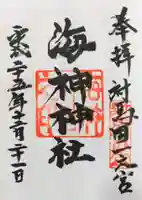 奉拝 対馬国一之宮
海神神社
二十五年十二月二十一日